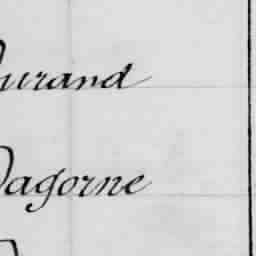 Durand
Dagorne